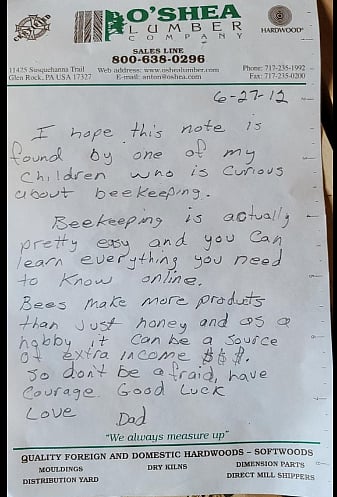 O'SHEA
LUMBER
COMPANY
HARDWOOD
SALES LINE
800-638-0296
11425 Susquehanna Trail
Glen Rock, PA USA 17327
Web address: www.oshealumber.com
E-mail: anton@oshea.com
Phone: 717-235-1992
Fax: 717-235-0200
6-27-12
I hope this note is
found by one of my
children who is curious
about beekeeping.
Beekeeping is actually
pretty easy and you can
learn everything you need
to know online.
Bees make more products
than just honey and as a
hobby it can be a source
of extra income $$$.
So don't be afraid, have
courage Good Luck
Love Dad
"We always measure up"
QUALITY FOREIGN AND DOMESTIC HARDWOODS – SOFTWOODS
MOULDINGS DRY KILNS DIMENSION PARTS
DISTRIBUTION YARD DIRECT MILL SHIPPERS